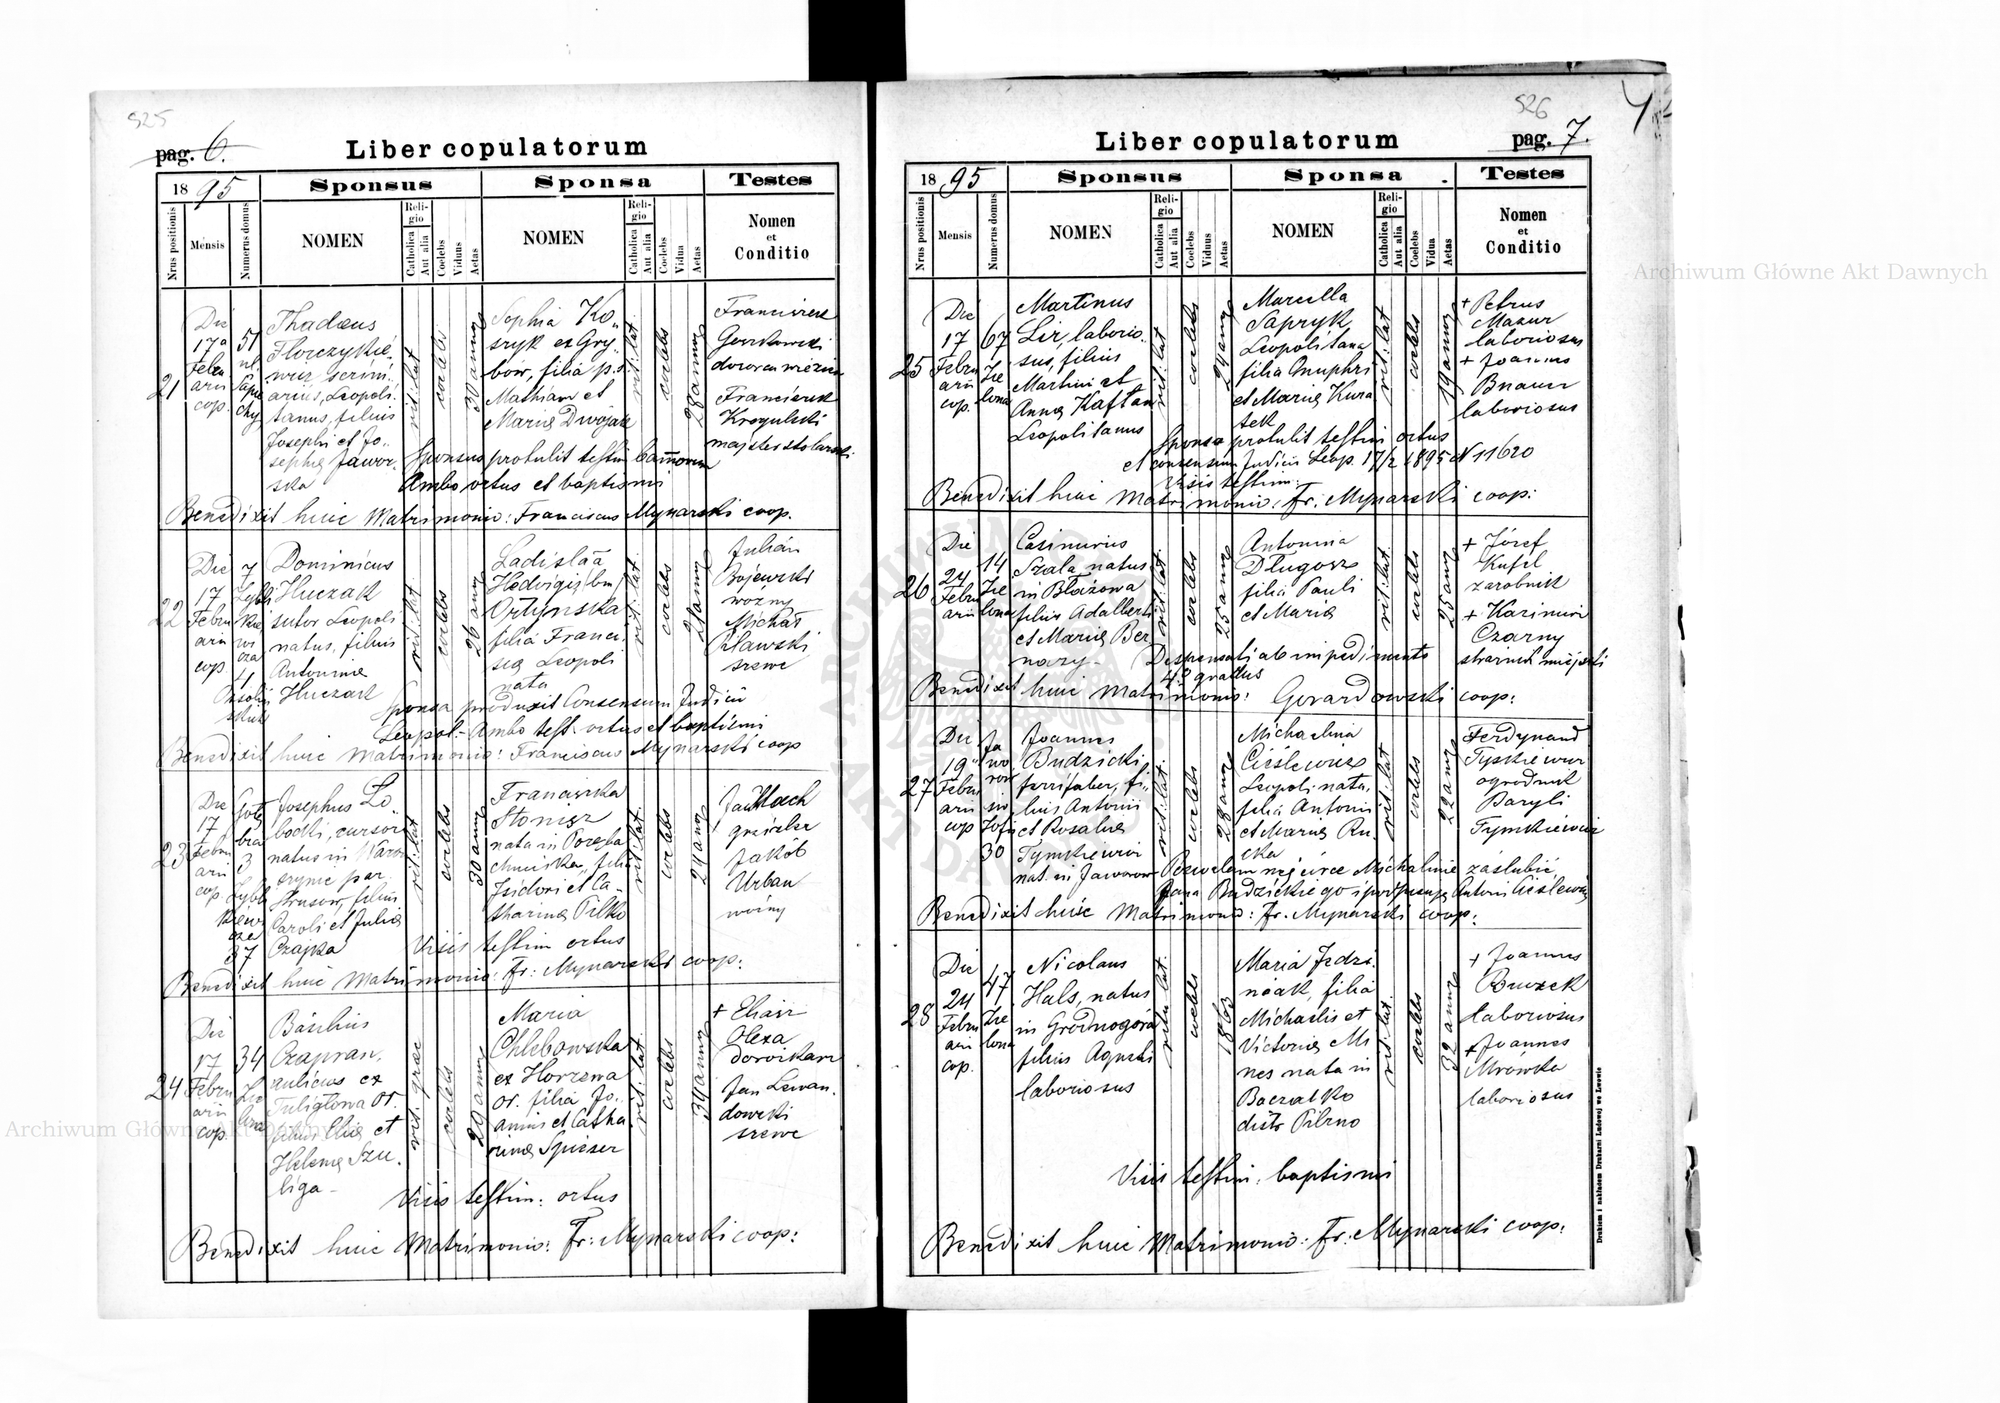 525
pag. 6.
Liber copulatorum
1895
Sponsus
Sponsa
Testes
Nrus positionis
Mensis
Numerus domus
NOMEN
Religio
Catholica
Aut alia
Coelebs
Viduus
Aetas
NOMEN
Religio
Catholica
Aut alia
Coelebs
Vidua
Aetas
Nomen
et
Conditio
21
Die
17a
Febru
arii
cop.
51
ul.
Sapie
chy
Thadaeus
Florczykie„
wicz, scrini„
arius, Leopoli„
tanus, filius
Josephi et Jo„
sephae Jawor„
ska
rit: lat
coelebs
30 annor
Sophia Ko„
szyk ex Gry„
bów, filia p.d.
Mathiae et
Mariae Dwojak
rit: lat.
coelebs
28 annor
Franciszek
Gorzkowski
dozorca więzien
Franciszek
Kregulski
majster stolarski
Sponsus protulit testim bannorum
Ambo ortus et baptismi
Benedixit huic Matrimonio: Franciscus Mynarski coop.
22
Die
17
Febru
arii
cop.
7
Dominicus
Huczak
sutor Leopoli
natus, filius
Antoninae
Huczak
rit: lat
coelebs
26 ann
Ladislaa
Hedvigis (bm)
Ortynska
filia Franci„
scae Leopoli
nata
rit: lat
coelebs
21 annor
Julian
Bojewski
woźny
Michał
Pilawski
szewc
Sponsa produxit Consensum Judicii
Leopol:- Ambo test. ortus et baptismi
Benedixit huic Matrimonio: Franciscus Mynarski coop
23
Die
17
Febru
arii
cop.
37
Josephus Lo„
bodki, cursor
natus in Waro„
szyme par.
Strusow, filius
Caroli et Juliae
Czajka
rit: lat
coelebs
30 annor
Franciszka
Stonisz
nata in Poremba
filia
Isidori et Ca„
tharinae Pilko
rit: lat.
coelebs
24 ann
Jan Stach
grajzler
Jakób
Urban
woźny
Visis testim ortus
Benedixit huic Matrimonio: Fr: Mynarski coop:
24
Die
17
Febru
arii
cop.
34
Zie
lona
Basilius
Czapran,
aulicus ex
Tuligłowa or.
filius Eliae et
Helenae Szu„
liga -
rit. graec
coelebs
29 annor
Maria
Chlebowska
ex Horzewa
or. filia Jo„
annis et Catha
rinae Spieser
rit: lat.
coelebs
39 annor
+ Eliasz
Olexa
dorożkarz
Jan Lewan„
dowski
szewc
Visis testim: ortus
Benedixit huic Matrimonio: Fr: Mynarski coop:
526
pag. 7.
Liber copulatorum
1895
Sponsus
Sponsa
Testes
Nrus positionis
Mensis
Numerus domus
NOMEN
Religio
Catholica
Aut alia
Coelebs
Viduus
Aetas
NOMEN
Religio
Catholica
Aut alia
Coelebs
Vidua
Aetas
Nomen
et
Conditio
25
Die
17
Febru
arii
cop.
67
Zie
lona
Martinus
Lir, laborio„
sus, filius
Martini et
Annae Kaftan
Leopolitanus
rit: lat
coelebs
24 annor
Marcella
Sapryk
Leopolitana
filia Onuphri
et Mariae Kura
tek
rit: lat
coelebs
19 annor
+ Petrus
Mazur
laboriosus
+ Joannes
Bnauer
laboriosus
Sponsa protulit testim ortus
et consensum Judicii Leop. 17/2 1895 N 11620
Visis testim:
Benedixit huic Matrimonio: Fr: Mynarski coop:
26
Die
24
Febru
arii
14
Zie
lona
Casimirus
Szala, natus
in Błażowa
filius Adalberti
et Mariae Ber„
nazy-
rit: lat.
coelebs
25 annor
Antonina
Długosz
filia Pauli
et Mariae
rit: lat.
coelebs
25 annor
+ Józef
Kufil
zarobnik
+ Kazimierz
Czarny
strażnik miejski
Dispensati ab impedimento
4o gradus
Benedixit huic Matrimonio: Gerardowski coop:
27
Die
19„
Febru
arii
cop
30
Joannes
Budzicki,
ferrifaber, fi„
lius Antonii
et Rosaliae
Tymkiewicz
nat. in Jaworow
rit: lat.
coelebs
28 annor
Michalina
Cieślewicz
Leopoli nata,
filia Antonii
et Mariae Ru„
cka
rit: lat
coelebs
22 annor
Ferdynand
Tyszkiewicz
ogrodnik
Baryli
Tymkiewicz
Pozwalam mej córce Michalinie zaślubić
Jana Budzickiego i podpisuję Antoni Cieślewicz
Benedixit huic Matrimonio: Fr. Mynarski coop:
28
Die
24
Febru
arii
cop.
47
Zie
lona
Nicolaus
Hals, natus
in Grodnogóra
filius Agneti
laboriosus
ritu lat.
coelebs
1863
Maria Jędzi„
niak, filia
Michaelis et
Victoriae Mi
nes nata in
Baczałko
distr Pilzno
rit: lat.
coelebs
32 annor
+ Joannes
Bruzek
laboriosus
+ Joannes
Mrówka
laboriosus
Visis testim. baptismi
Benedixit huic Matrimonio: Fr. Mynarski coop:
Drukiem i nakładem Drukarni Ludowej we Lwowie
Archiwum Główne Akt Dawnych
Archiwum Główne Akt Dawnych